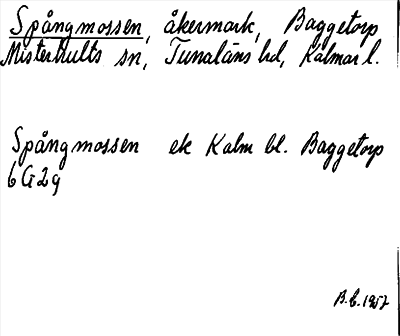 Spångmossen, åkermark, Baggetorp
Misterhults sn, Tunaläns hd, Kalmar l.
Spångmossen ek Kalm bl. Baggetorp
6G2g
B.b. 1957